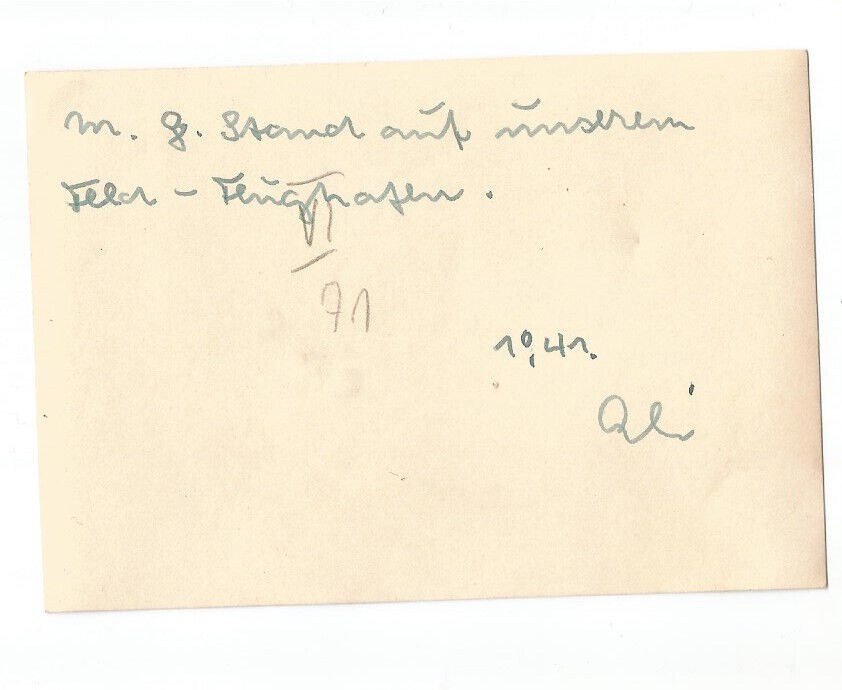 M. G. Stand auf unserem
Feld - Flughafen.
VI
71
10,41.